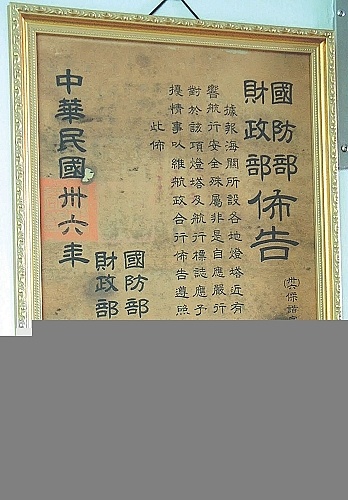 國防部
財政部
佈告
據報海關所設各地燈塔近有
響航行安全殊屬非是自應嚴行
對於該項燈塔及航行標誌應予
擾情事以維航政合行佈告遵照
此佈
國防部
財政部
中華民國卅六年